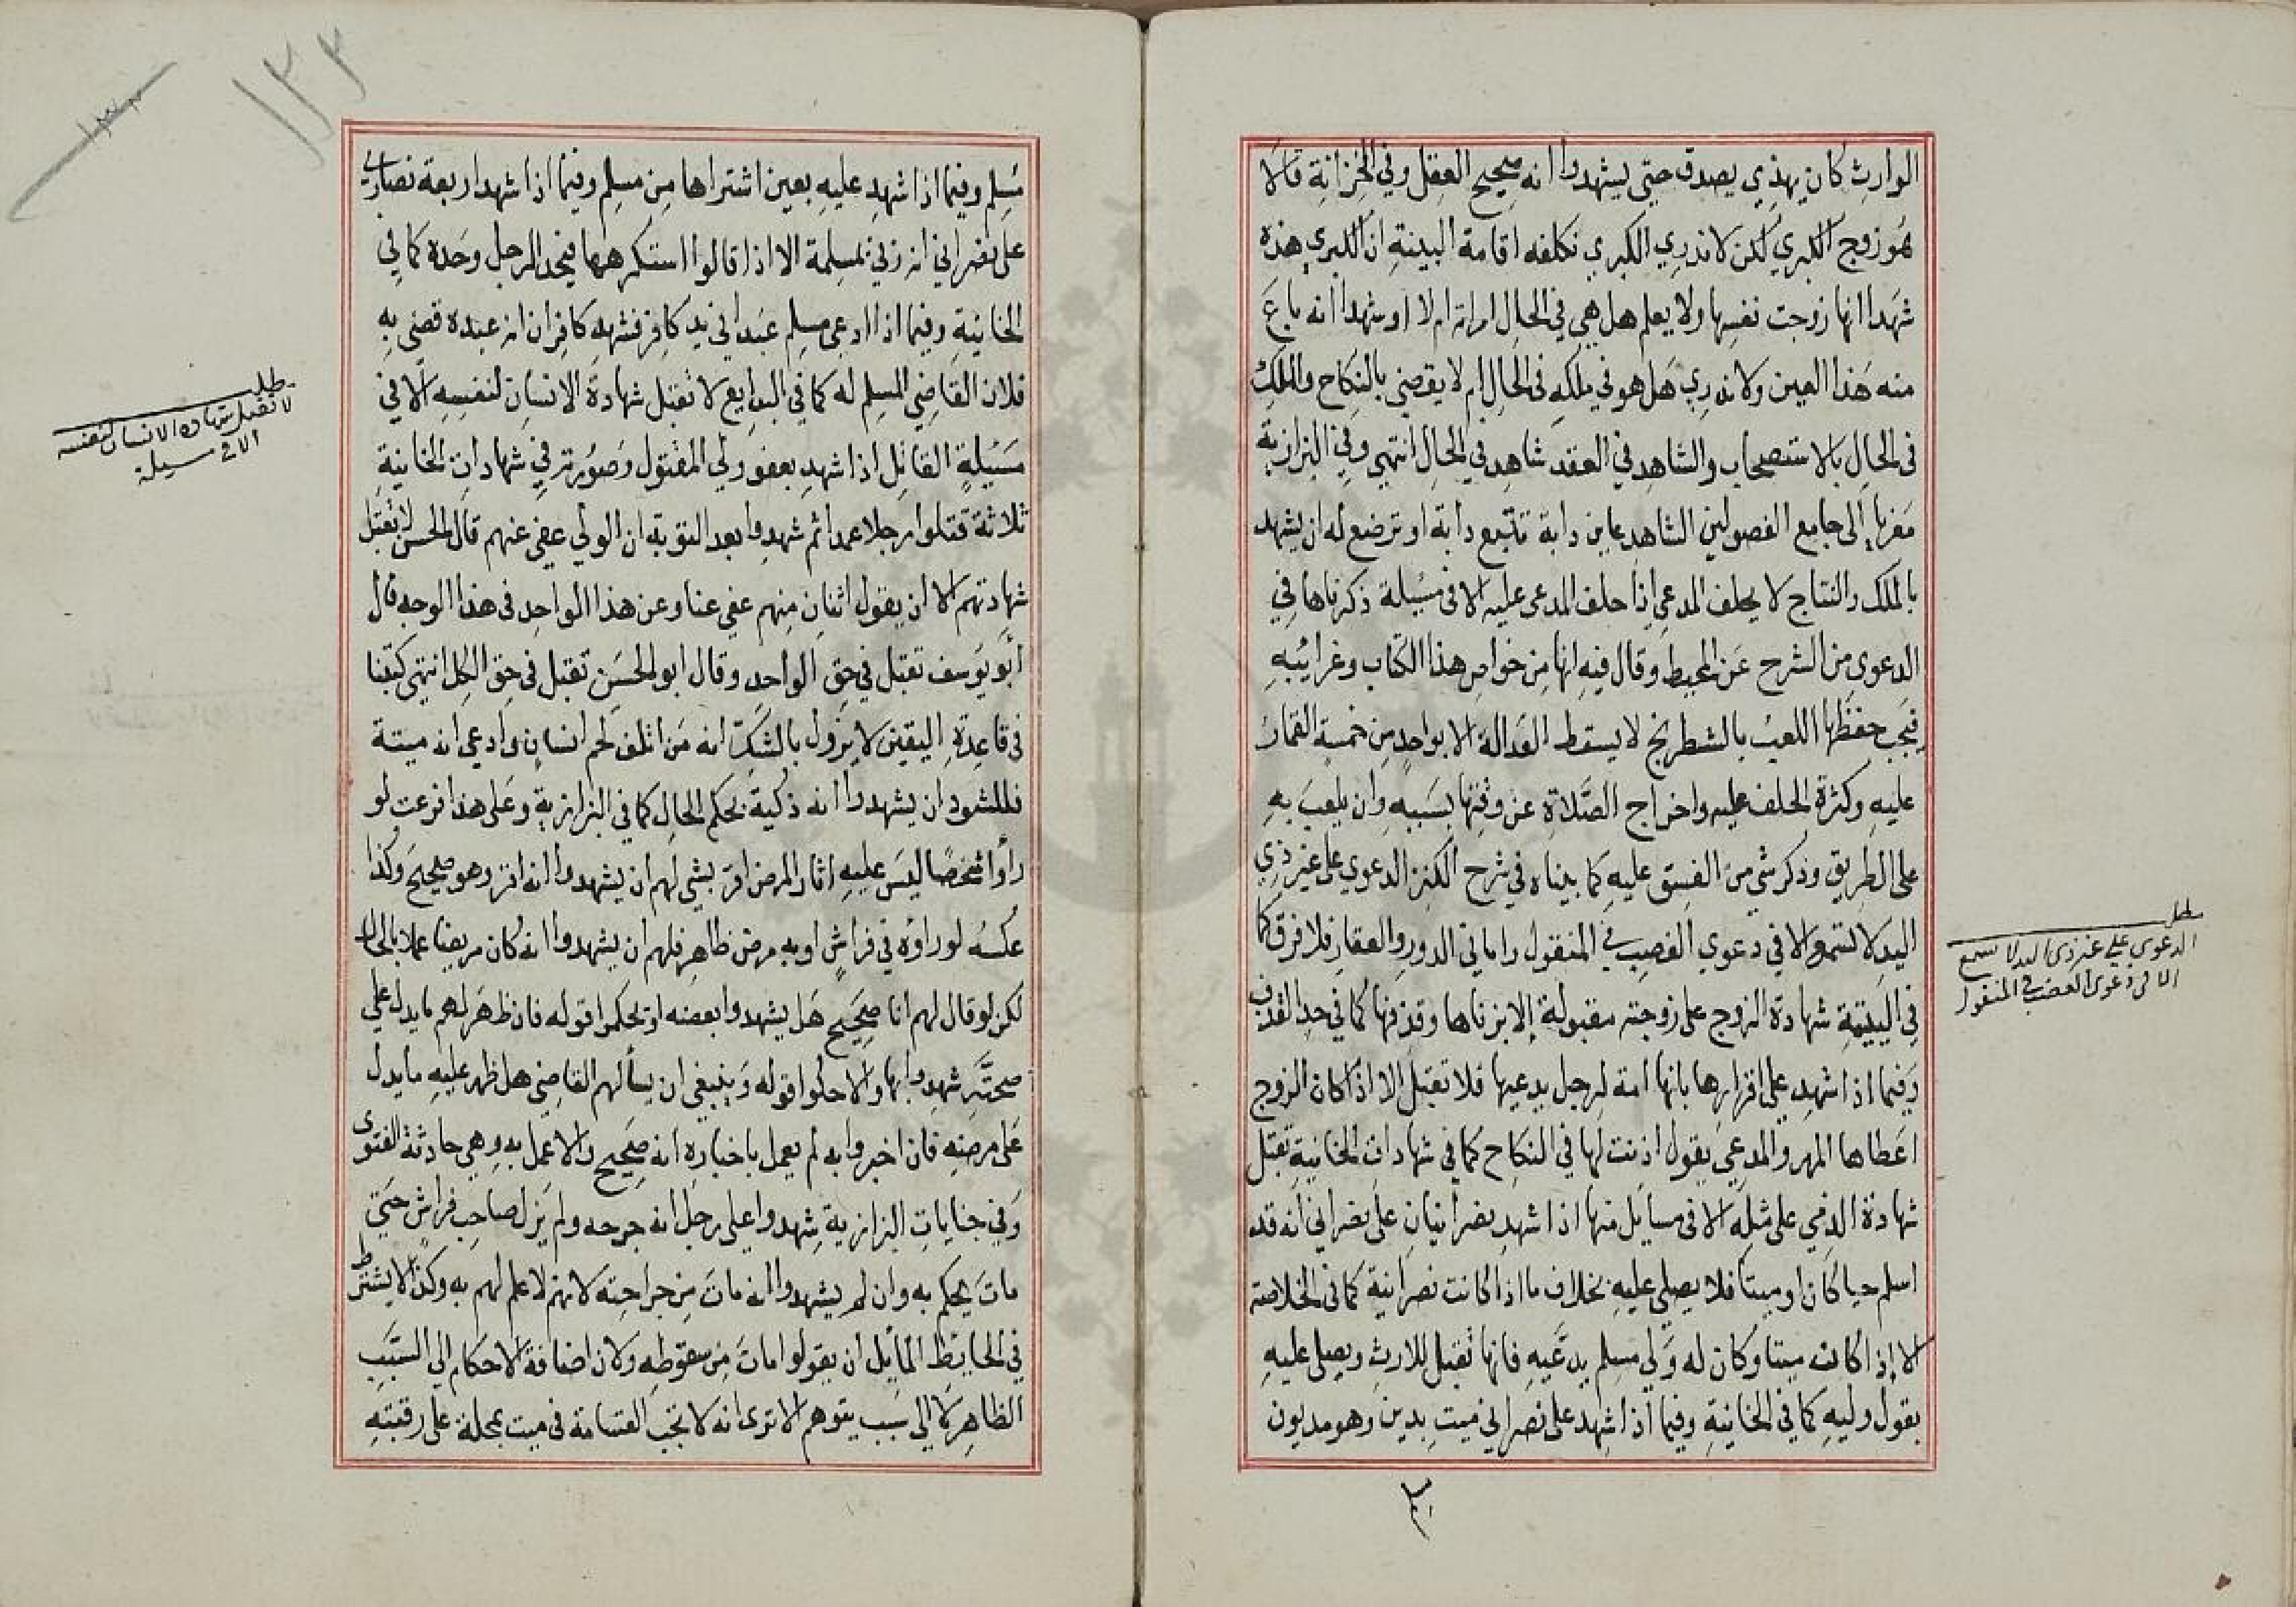 الوارث كان يهذي يصدق حتى يشهدوا انه صحيح العقل وفي الخزانة قالا
هو زوج الكبري لكن لا ندري الكبري نكلفه اقامة البينة ان الكبري هذه
شهدا انها زوجت نفسها ولا يعلم هل هي في الحال امراته ام لا او شهدا انه باع
منه هذا العين ولا ندري هل هو في ملكه في الحال ام لا يقضي بالنكاح والملك
في الحال بالاستصحاب والشاهد في العقد شاهد في الحال انتهي وفي البزازية
معزيا إلى جامع الفصولين الشاهد عاين دابة تتبع دابة او ترضع له ان يشهد
بالملك والنتاج لا يحلف المدعي اذا حلف المدعى عليه الا في مسئلة ذكرناها في
الدعوي من الشرح عن المحيط وقال فيه انها من خواص هذا الكتاب وغرائبه
فيجب حفظها اللعب بالشطرنج لا يسقط العدالة الا بواحد من خمسة القمار
عليه وكثرة الحلف عليه واخراج الصلاة عن وقتها بسببه وان يلعب به
على الطريق وذكر شي من الفسق عليه كما بيناه في شرح الكنز الدعوي على غير ذي
اليد لا تسمع الا في دعوي الغصب في المنقول واما في الدور والعقار فلا فرق كما
في اليتيمة شهادة الزوج على زوجته مقبولة إلا بزناها وقذفها كما في حد القذف
وفيما اذا شهد على اقرارها بانها امة لرجل يدعيها فلا تقبل الا اذا كان الزوج
اعطاها المهر والمدعي يقول اذنت لها في النكاح كما في شهادات الخانية تقبل
شهادة الذمي على مثله الا في مسايل منها اذا شهد نصرانيان على نصراني انه قد
اسلم حيا كان او ميتا فلا يصلي عليه بخلاف ما اذا كانت نصرانية كما في الخلاصة
الا إذا كانت ميتا وكان له ولي مسلم يدعيه فانها تقبل للارث ويصلى عليه
بقول وليه كما في الخانية وفيما اذا شهد على نصراني ميت بدين وهو مديون
مطلب
الدعوي على غير ذي اليد لا تسمع
الا في دعوى الغصب في المنقول
مسلم وفيما اذا شهد عليه بعين اشتراها من مسلم وفيما اذا شهد اربعة نصارى
على نصراني انه زني بمسلمة الا اذا قالوا استكرهها فيحد الرجل وحده كما في
الخانية وفيما اذا ادعى مسلم عبدا في يد كافر فشهد كافران انه عبده قضى به
فلان القاضي المسلم له كما في البدايع لا تقبل شهادة الانسان لنفسه الا في
مسئلة القاتل اذا شهد بعفو ولي المقتول وصورته في شهادات الخانية
ثلاثة قتلوا رجلا عمدا ثم شهدوا بعد التوبة ان الولي عفى عنهم قال الحسن لا تقبل
شهادتهم الا ان يقول اثنان منهم عفي عنا وعن هذا الواحد في هذا الوجه قال
أبو يوسف تقبل في حق الواحد وقال ابو الحسن تقبل في حق الكل انتهى كتبنا
في قاعدة اليقين لا يزول بالشك انه من اتلف لحم انسان وادعي انه ميتة
فللشهود ان يشهدوا انه ذكية بحكم الحال كما في البزازية وعلى هذا فرعت لو
رأوا شخصا ليس عليه اثار المرض اقر بشي لهم ان يشهدوا انه اقر وهو صحيح وكذا
عكسه لو راؤه في فراش او به مرض ظاهر فلهم ان يشهدوا انه كان مريضا عملا بالحال
لكن لو قال لهم انا صحيح هل يشهدوا بصحته او يحكموا قوله فان ظهر لهم ما يدل على
صحته شهدوا بها والا حكوا قوله وينبغي ان يسألهم القاضي هل ظهر عليه ما يدل
على مرضه فان اخبروا به لم يعمل باخباره انه صحيح والا عمل به وهي حادثة الفتوى
وفي جنايات البزازية شهدوا على رجل انه جرحه ولم يزل صاحب فراش حتى
مات يحكم به وان لم يشهدوا انه مات من جراحته لانهم لا علم لهم به وكذا لا يشترط
في الحايط المايل ان يقولوا مات من سقوطه ولان اضافة الاحكام الى السبب
الظاهر لا الي سبب يتوهم الا ترى انه لا تجب القسامة في ميت بمحلة على رقبته
مطلب
لا تقبل شهاده الانسان لنفسه
الا في مسيلة
١٣٢